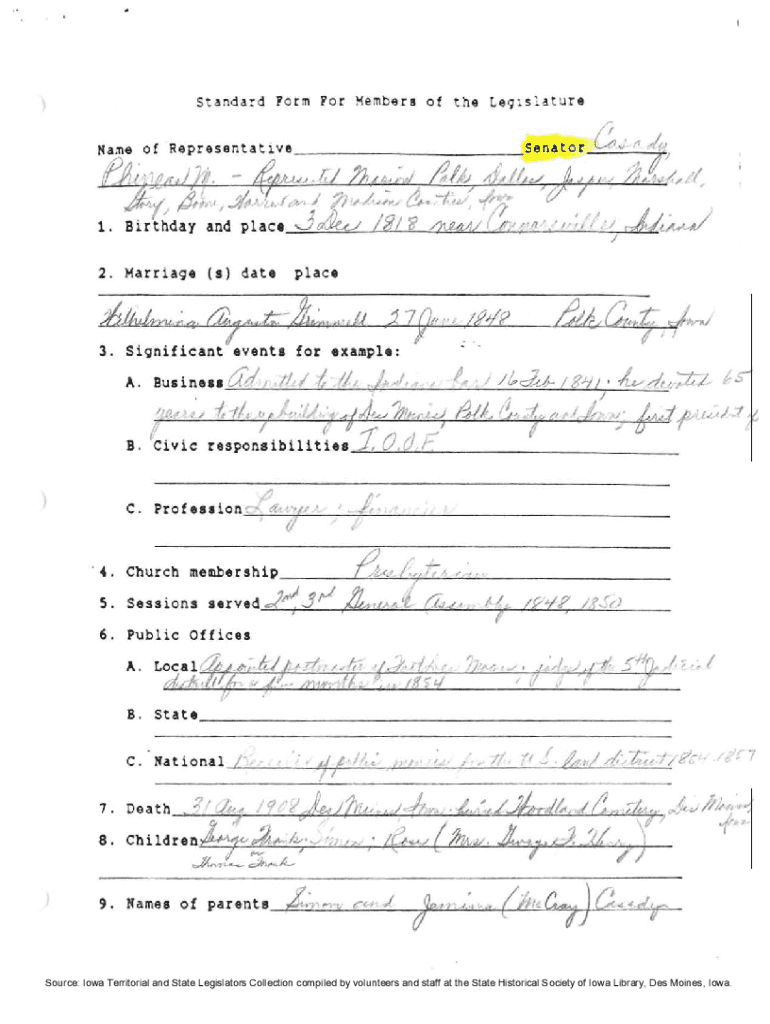 Standard Form For Members of the Legislature
Name of Representative Senator Casady,
Phineas M. - Represented Marion Polk, Dallas, Jasper, Marshall,
Story, Boone, Warren and Madison Counties, Iowa
1. Birthday and place 3 Dec 1818 near Connorsville, Indiana
2. Marriage (s) date place
Wilhelmina Augusta Grimmell 27 June 1848 Polk County, Iowa
3. Significant events for example:
A. Business Admitted to the Indiana bar 16 Feb 1841; he devoted 65
years to the upbuilding of Des Moines, Polk County and Iowa; first president of
B. Civic responsibilities I.O.O.F.
C. Profession Lawyer; financier
4. Church membership Presbyterian
5. Sessions served 2nd, 3rd General Assembly 1848, 1850
6. Public Offices
A. Local Appointed postmaster of Fort Des Moines; judge of the 5th Judicial
district for a few months in 1854
B. State
C. National Receiver of public monies for the U.S. land district 1854-1857
7. Death 31 Aug 1908 Des Moines, Iowa; buried Woodland Cemetery, Des Moines,
Iowa
8. Children George Simon; Rose (Mrs. George F. Henry)
Thomas
9. Names of parents Simon and Jemima (McCray) Casady
Source: Iowa Territorial and State Legislators Collection compiled by volunteers and staff at the State Historical Society of Iowa Library, Des Moines, Iowa.